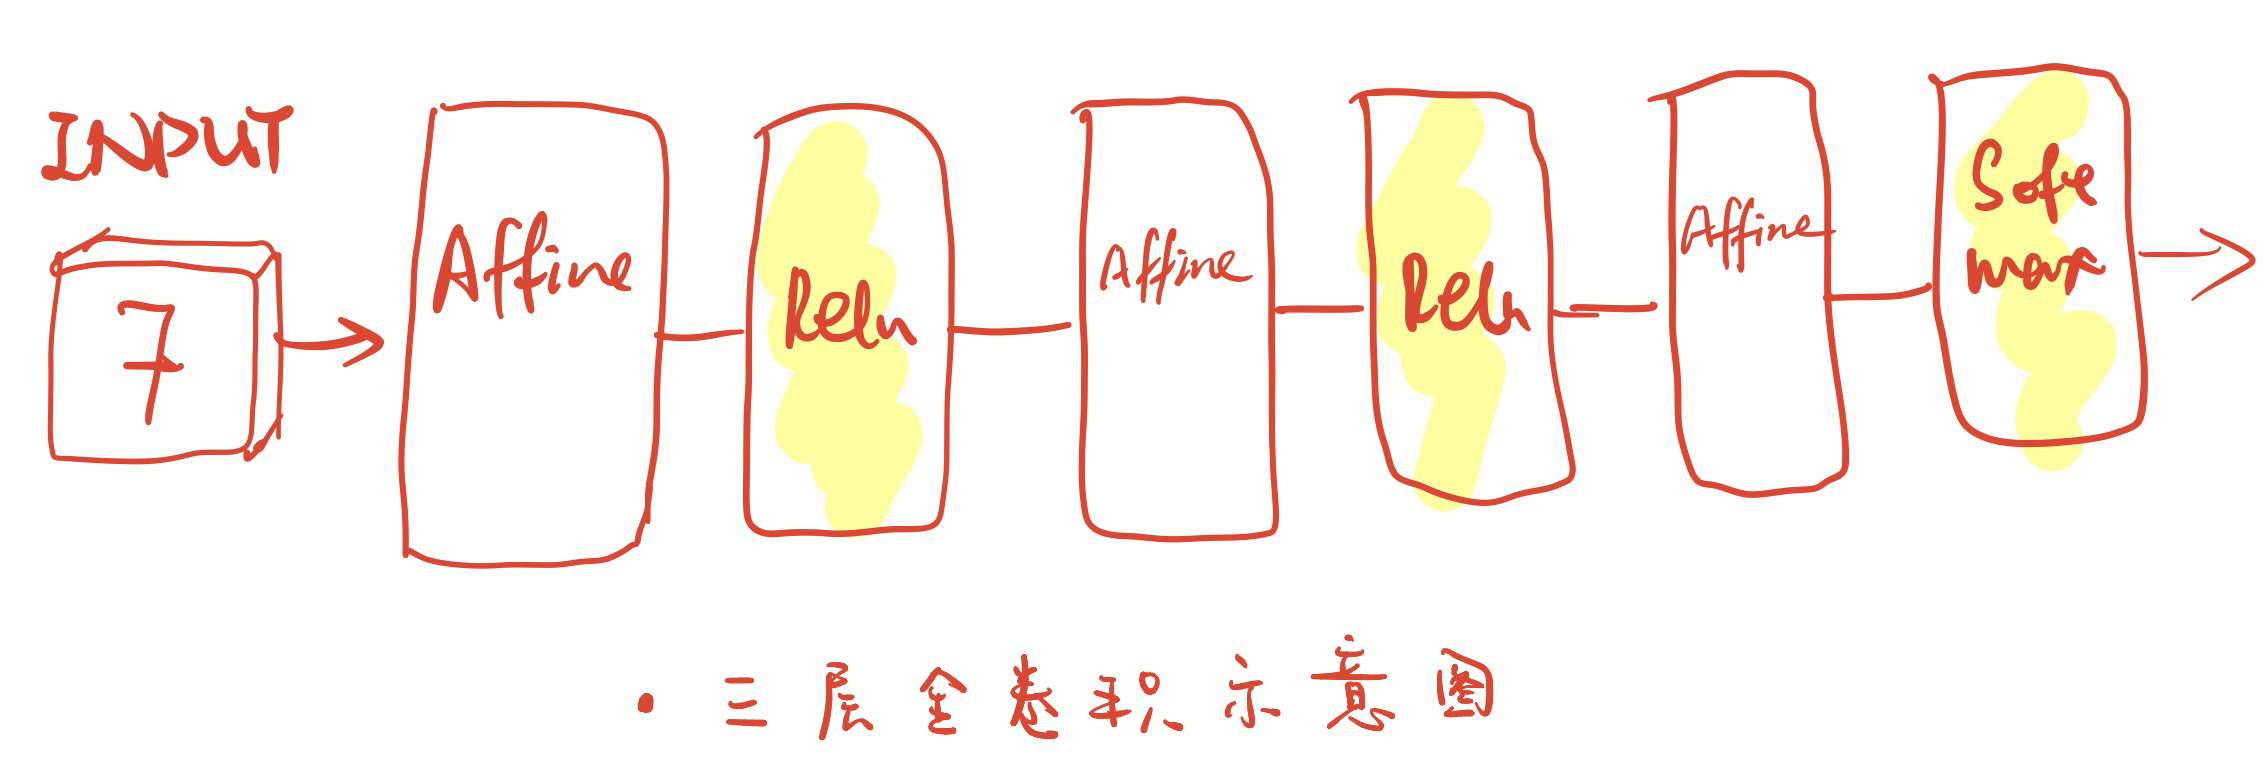 INPUT
7
Affine
Relu
Affine
Relu
Affine
Soft
max
• 三层全卷积示意图